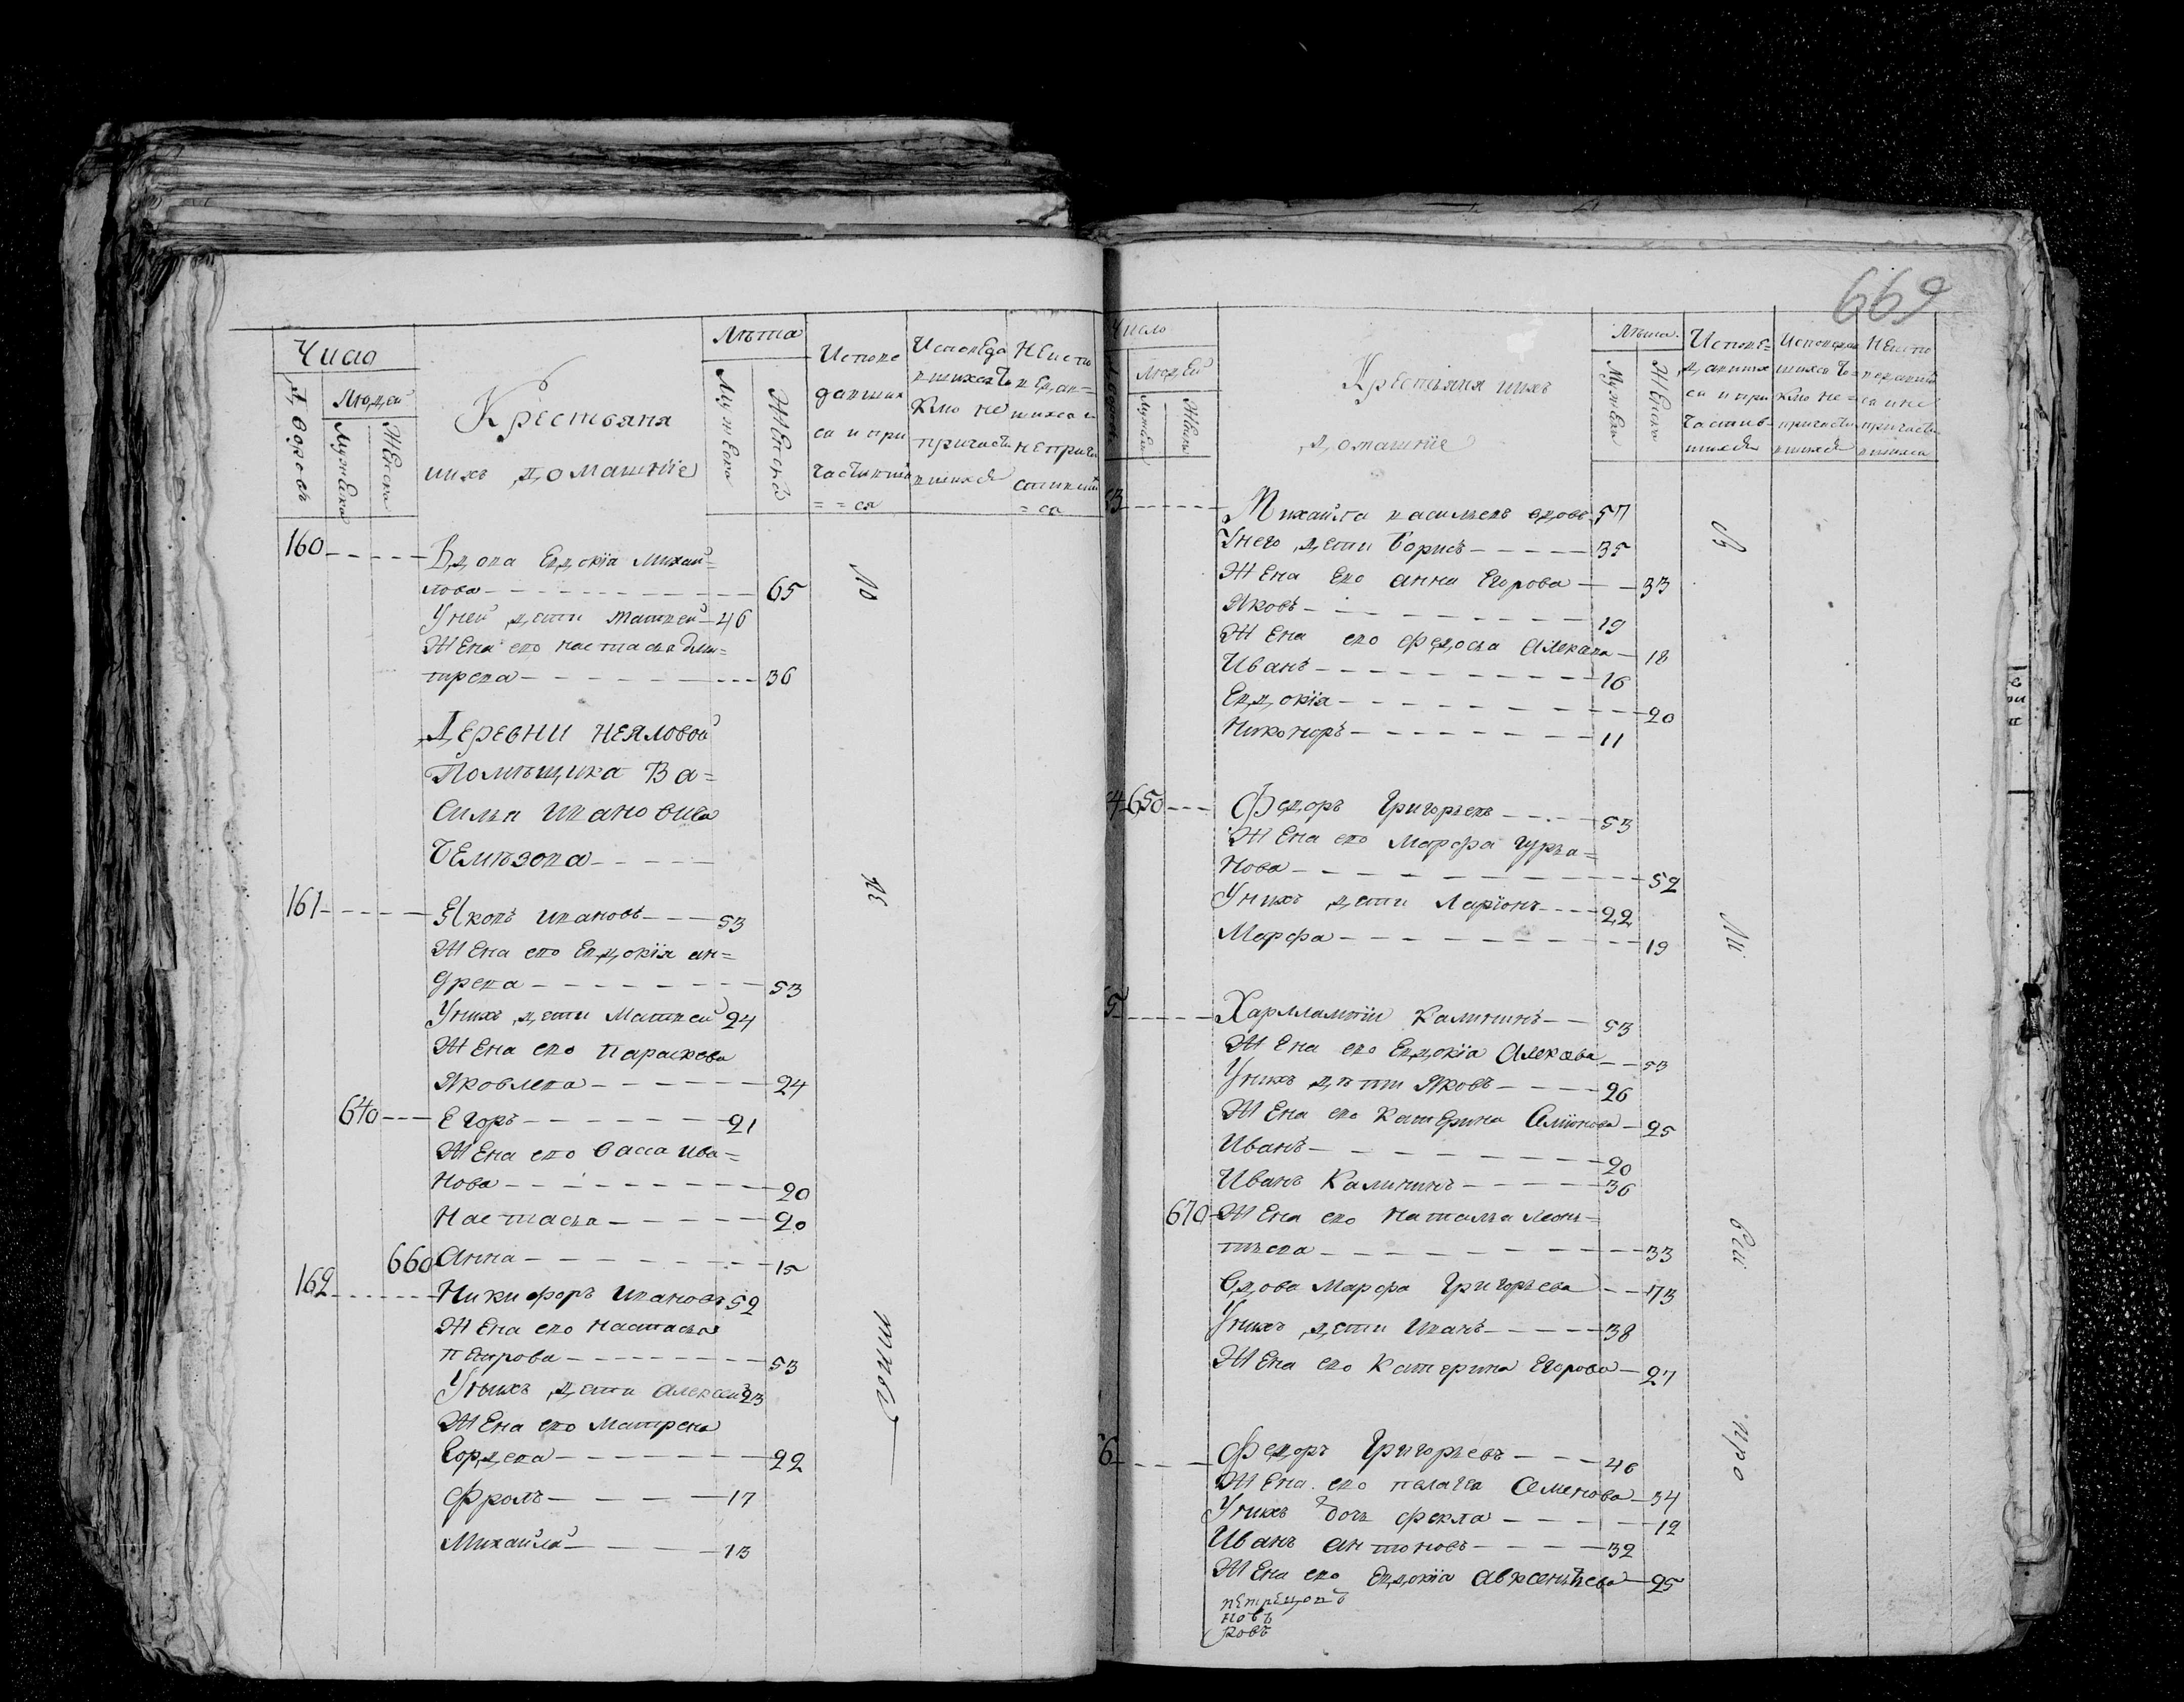 Число
Дворовъ
Людей
Мужеска
Женска
Крестьяня
ихъ домашнїе
Лѣта
Мужеска
Женска
Испове
давших
ся и при
частивши
= = ся
Исповеда
вшихся ѣ
кмо не
причасти
вшихся
Неиспо
ведав=
шихся и
непричас
стивши
= ся
160
Вдова Евдокїа Михай=
лова 65
У ней дети Матвей 46
Жена ево Настасья Дми=
трева 36
Деревни Неяловой
Помѣщика Ва=
силья Ивановича
161
Яковъ Ивановъ 53
Жена ево Евдокїя Ан=
древа 53
У нихъ дети Матвей 24
Жена ево Парасковья
Яковлева 24
640 Егоръ 21
Жена ево Васса Ива=
нова 20
Настасья 20
660 Анна 15
162
Никифоръ Ивановъ 52
Жена ево Настасья
Петрова 53
У нихъ дети Алексей 23
Жена ево Матрена
Гордева 22
Фролъ 17
Михайла 13
669
Число
Людей
Мужеска
Женска
Крестьяня ихъ
домашнїе
Лѣта
Мужеска
Женска
Испове=
давших
ся и при
частив=
шихся
Исповедав
шихся ѣ=
кмо не=
причасти
вшихся
Неиспо
ведавши
ся и не
причасти
вшихся
3
Михайла Васильевъ вдовъ 57
У него дети Борисъ 35
Жена ево Анна Егорова 33
Яковъ 19
Жена ево Федосья Алексева 18
Иванъ 16
Евдокїя 20
Никоноръ 11
4 650 Федоръ Григорьевъ 53
Жена ево Марфа Гурьа=
нова 52
У нихъ дети Ларїонъ 22
Марфа 19
5
Харлампїи Калининъ 53
Жена ево Евдокїа Алексева 53
У нихъ дѣти Яковъ 26
Жена ево Катерина Семїонова 25
Иванъ 20
Иванъ Калининъ 36
670 Жена ево Наталья Леонъ=
тьева 33
Вдова Марфа Григорьева 73
У нихъ дети Иванъ 38
Жена ево Катерина Егорова 27
6
Федоръ Григорьевъ 46
Жена ево Палагея Семенова 34
У нихъ дочь Фекла 12
Иванъ Антоновъ 32
Жена ево Евдокїа Авксентьева 25
новъ
ровъ